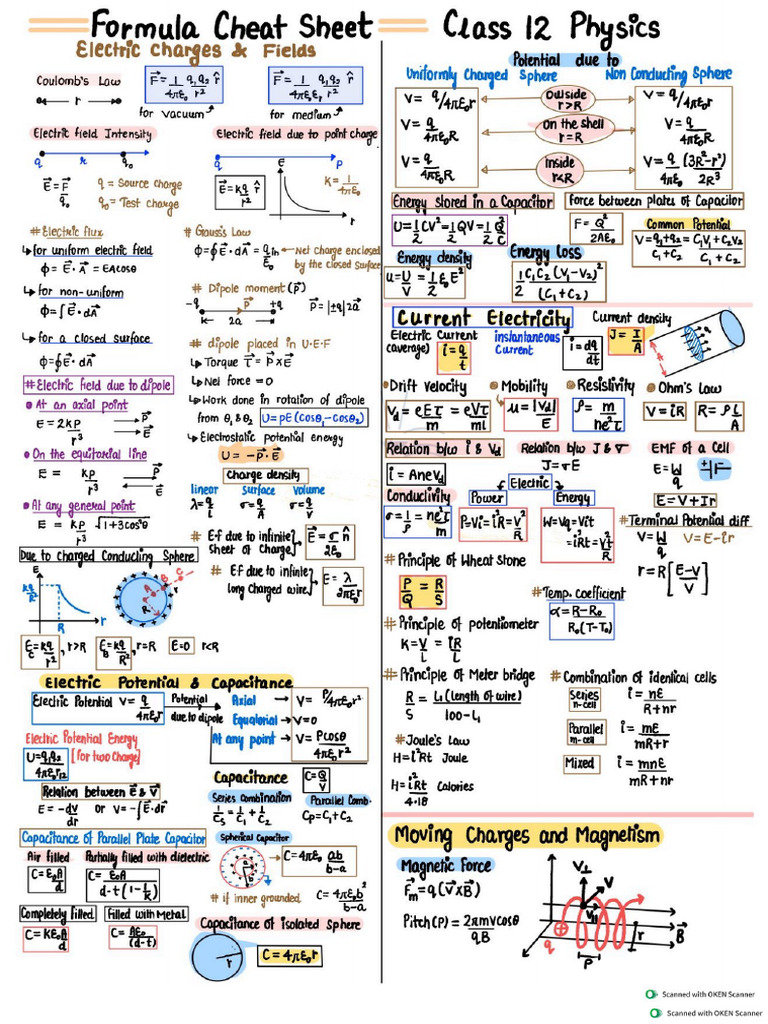 Formula Cheat Sheet Class 12 Physics
Electric Charges & Fields
Coulomb's Law
r
F⃗ = 1/4πε₀ q₁q₂/r² r̂
for vacuum
F⃗ = 1/4πε₀εᵣ q₁q₂/r² r̂
for medium
Electric field Intensity
q r q₀
E⃗ = F⃗/q₀
q = Source charge
q₀ = Test charge
Electric field due to point charge
q P
E⃗ = kq/r² r̂
E
r
K = 1/4πε₀
# Electric flux
↳ for uniform electric field
ϕ = E⃗ · A⃗ = EAcosθ
↳ for non-uniform
ϕ = ∫E⃗ · dA⃗
↳ for a closed surface
ϕ = ∮E⃗ · dA⃗
# Gauss's Law
ϕ = ∮E⃗ · dA⃗ = qin/ε₀
Net charge enclosed
by the closed surface
# Dipole moment (P⃗)
-q P⃗ +q
2a
P⃗ = |±q| 2a
# dipole placed in U.E.F
↳ Torque τ⃗ = P⃗ × E⃗
↳ Net force = 0
↳ Work done in rotation of dipole
from θ₁ & θ₂ U = pE (Cosθ₁-Cosθ₂)
↳ Electrostatic potential energy
U = -P⃗ · E⃗
# Electric field due to dipole
At an axial point
E = 2kp/r³
P⃗
E⃗
On the equitorial line
E = kp/r³
P⃗
E⃗
At any general point
E = kp/r³ √1+3cos²θ
Charge density
linear surface volume
λ = q/L σ = q/A σ = q/V
# Ef due to infinite
sheet of Charge
E⃗ = σ/2ε₀ n̂
# Ef due to infinite
long Charged wire
E = λ/2πε₀r
Due to Charged Conducting Sphere
E
kq/R²
R r
R A B C r
E_C = kq/r², r>R E_B = kq/R², r=R E=0 r<R
Electric Potential & Capacitance
Electric Potential V = q/4πε₀r
Potential
due to dipole
Axial V = P/4πε₀r²
Equatorial V=0
At any point V = Pcosθ/4πε₀r²
Electric Potential Energy
U = q₁q₂/4πε₀r₁₂ [for two Charge]
Relation between E⃗ & V⃗
E = -dv/dr or V = -∫E⃗·dr⃗
Capacitance C = Q/V
Series combination
1/Cs = 1/C₁ + 1/C₂
Parallel Comb.
Cp = C₁+C₂
Capacitance of Parallel Plate Capacitor
Air filled
C = ε₀A/d
Partially filled with dielectric
C = ε₀A/d-t(1-1/k)
Completely filled
C = Kε₀A/d
Filled with Metal
C = Aε₀/(d-t)
Spherical Capacitor
a b
C = 4πε₀ ab/b-a
# if inner grounded C = 4πε₀b²/b-a
Capacitance of isolated Sphere
r
C = 4πε₀r
Potential due to
Uniformly Charged Sphere Non Conducting Sphere
V = q/4πε₀r Outside r>R V = q/4πε₀r
V = q/4πε₀R On the shell r=R V = q/4πε₀R
V = q/4πε₀R Inside r<R V = q/4πε₀ (3R²-r²)/2R³
Energy stored in a Capacitor
U = 1/2 CV² = 1/2 QV = 1/2 Q²/C
Force between plates of Capacitor
F = Q²/2Aε₀
Common Potential
V = q₁+q₂/C₁+C₂ = C₁V₁+C₂V₂/C₁+C₂
Energy density
u = U/V = 1/2 ε₀E²
Energy loss
1/2 C₁C₂(V₁-V₂)²/(C₁+C₂)
Current Electricity
Electric Current
(average) i = q/t
instantaneous
Current i = dq/dt
Current density
J = I/A
A
Drift velocity
Vd = eEτ/m = eVτ/ml
Mobility
μ = |Vd|/E
Resistivity
ρ = m/ne²τ
Ohm's Law
V = iR R = ρL/A
Relation b/w i & Vd
i = AneVd
Relation b/w J & σ
J = σE
EMF of a Cell
E = W/q
E = V + Ir
Conductivity
σ = 1/ρ = ne²τ/m
Electric
Power
P = Vi = i²R = V²/R
Energy
W = Vq = Vit
= i²Rt = V²t/R
# Terminal Potential diff
V = W/q V = E-ir
r = R[E-V/V]
# Principle of Wheat stone
P/Q = R/S
# Temp. Coefficient
α = R-R₀/R₀(T-T₀)
# Principle of potentiometer
K = V/L = iR/L
# Principle of Meter bridge
R/S = L₁(length of wire)/100-L₁
# Joule's Law
H = i²Rt Joule
H = i²Rt/4.18 Calories
# Combination of identical cells
Series
n-cell
i = nE/R+nr
Parallel
m-cell
i = mE/mR+r
Mixed i = mnE/mR+nr
Moving Charges and Magnetism
Magnetic Force
F⃗m = q(V⃗×B⃗)
Pitch(P) = 2πmvcosθ/qB
V⊥ V
V∥
q P r B⃗
Scanned with OKEN Scanner
Scanned with OKEN Scanner